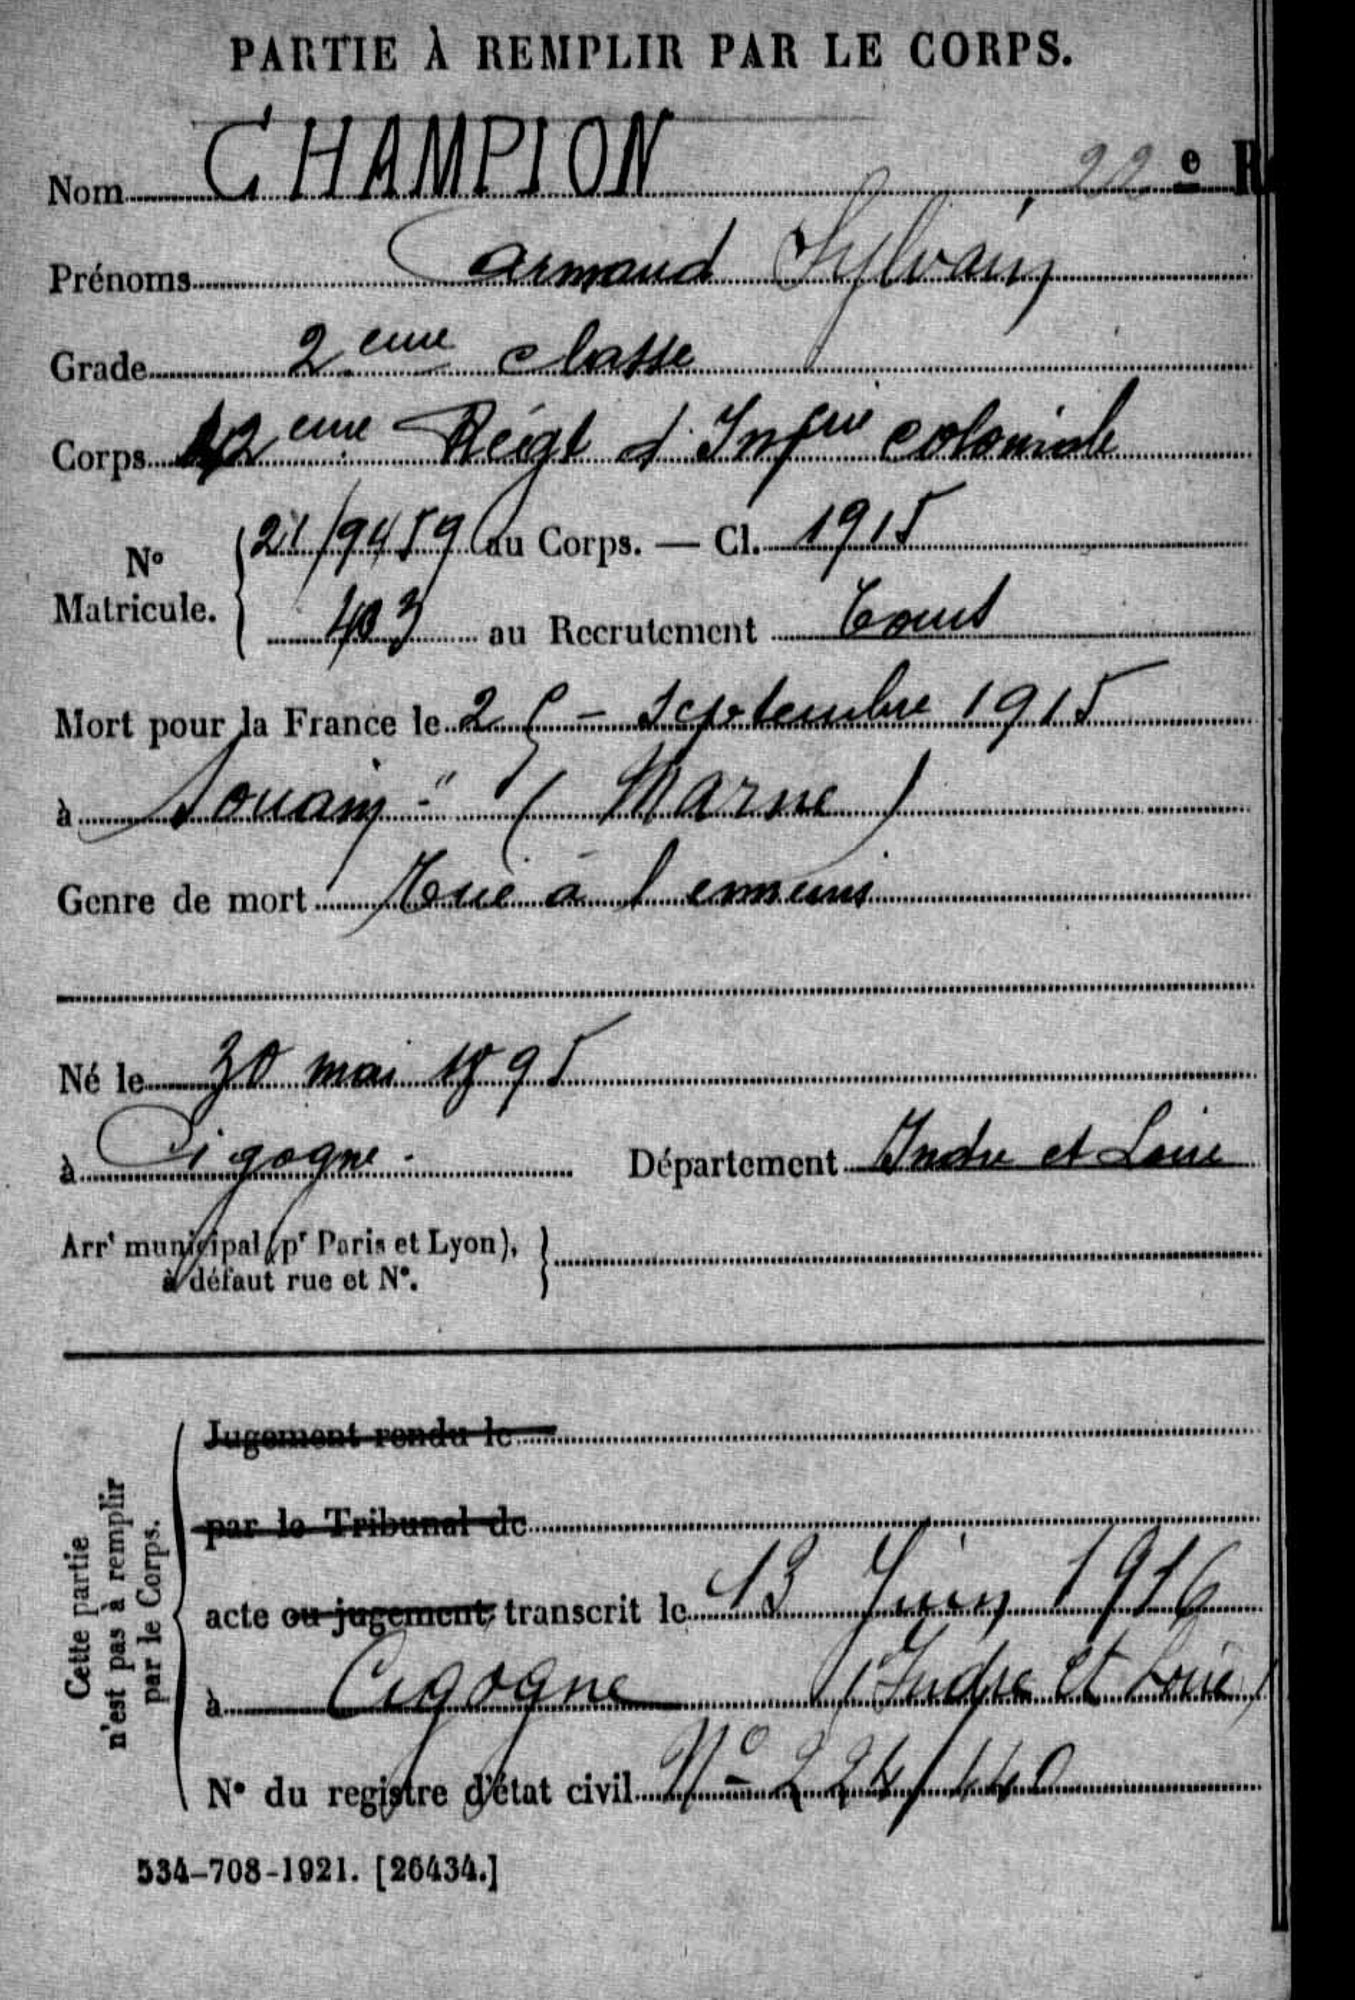 PARTIE À REMPLIR PAR LE CORPS.
Nom CHAMPION 22 e R
Prénoms Armand Sylvain
Grade 2.eme classe
Corps eme Régt d'Infrie coloniale
N° Matricule. { 21/9459 au Corps. — Cl. 1915
403 au Recrutement Tours
Mort pour la France le 25 - Septembre 1915
à Souain - " ( Marne )
Genre de mort Tué à l'ennemi
Né le 30 mai 1895
à Cigogne. Département Indre et Loire
Arrt municipal (pr Paris et Lyon), }
à défaut rue et N°.
Cette partie
n'est pas à remplir
par le Corps.
Jugement rendu le
par le Tribunal de
acte ou jugement transcrit le 13 Juin 1916
à Cigogne (Indre et Loire)
N° du registre d'état civil N° 224/440
534-708-1921. [26434.]